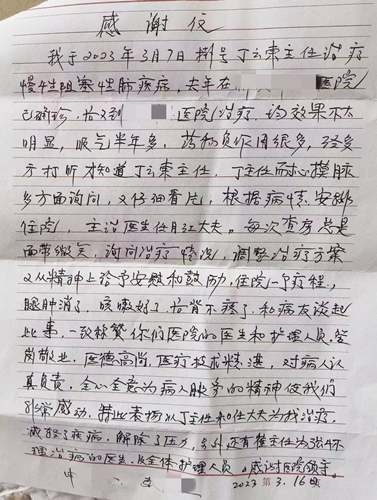 感谢信
我于2023年3月7日挂号丁云东主任治疗
慢性阻塞性肺疾病,去年在 医院
已确诊,后又到 医院治疗,效果不大
明显,吸气半年多,药物负作用很多,经多
方打听才知道丁云东主任,丁主任耐心摸脉
多方面询问,又仔细看片,根据病情,安排
住院,主治医生任月江大夫。每次查房总是
面带微笑,询问治疗情况,调整治疗方案
又从精神上给予安慰和鼓励,住院一个疗程,
腿肿消了,咳嗽好了,后背不疼了,和病友谈起
此事,一致称赞你们医院的医生和护理人员,爱
岗敬业,医德高尚,医疗技术精湛,对病人认
真负责,全心全意为病人服务的精神使我们
非常感动,特此表扬丁主任和任大夫为我治疗,
减轻了疾病,解除了压力,另外还有崔主任为我
理治病的医生,以及全体护理人员。感谢医院领导。
2023.3.16